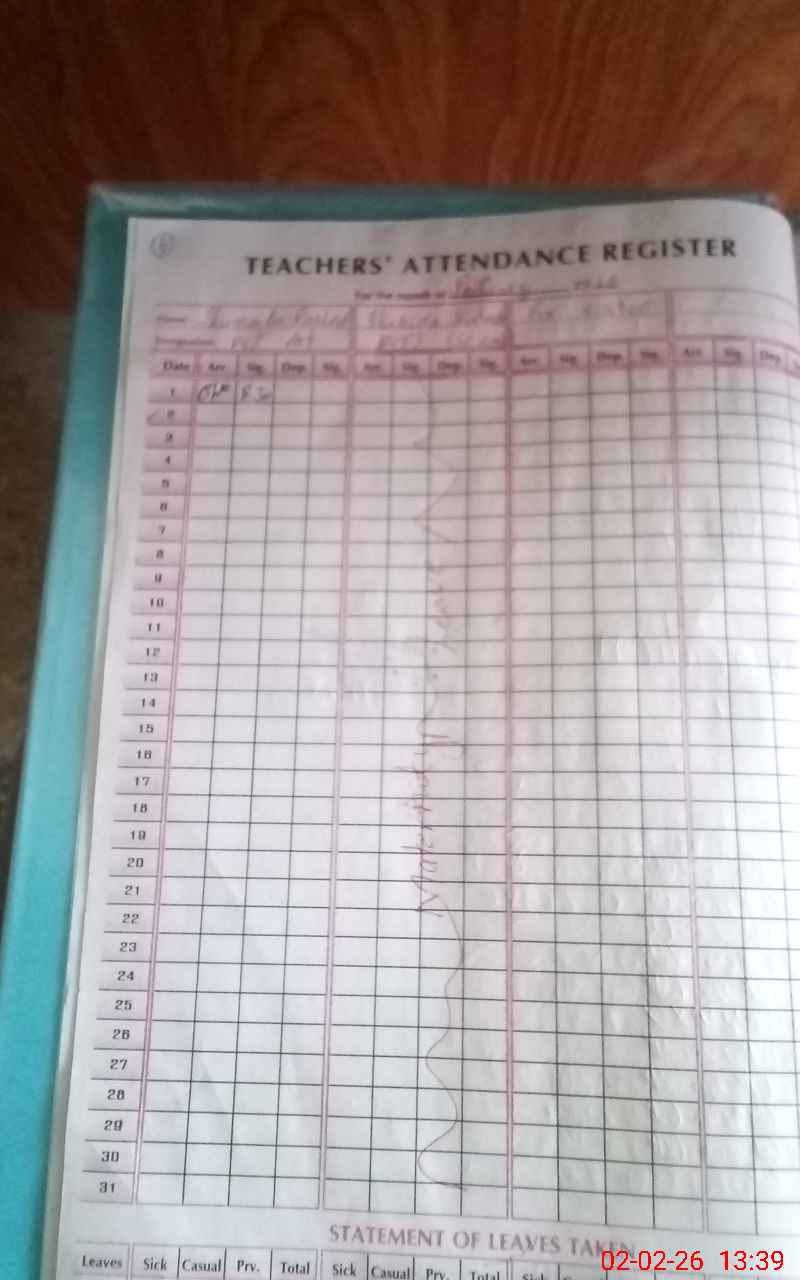 TEACHERS' ATTENDANCE REGISTER
For the month of
Name
Designation PST
Date Arr. Sig. Dep. Sig. Arr. Sig. Dep. Sig. Arr. Sig. Dep. Sig. Arr. Sig. Dep.
1
2
3
4
5
6
7
8
9
10
11
12
13
14
15
16
17
18
19
20
21
22
23
24
25
26
27
28
29
30
31
Maternity Leave
STATEMENT OF LEAVES TAKEN
Leaves Sick Casual Prv. Total Sick Casual Prv. Total Sick
02-02-26 13:39